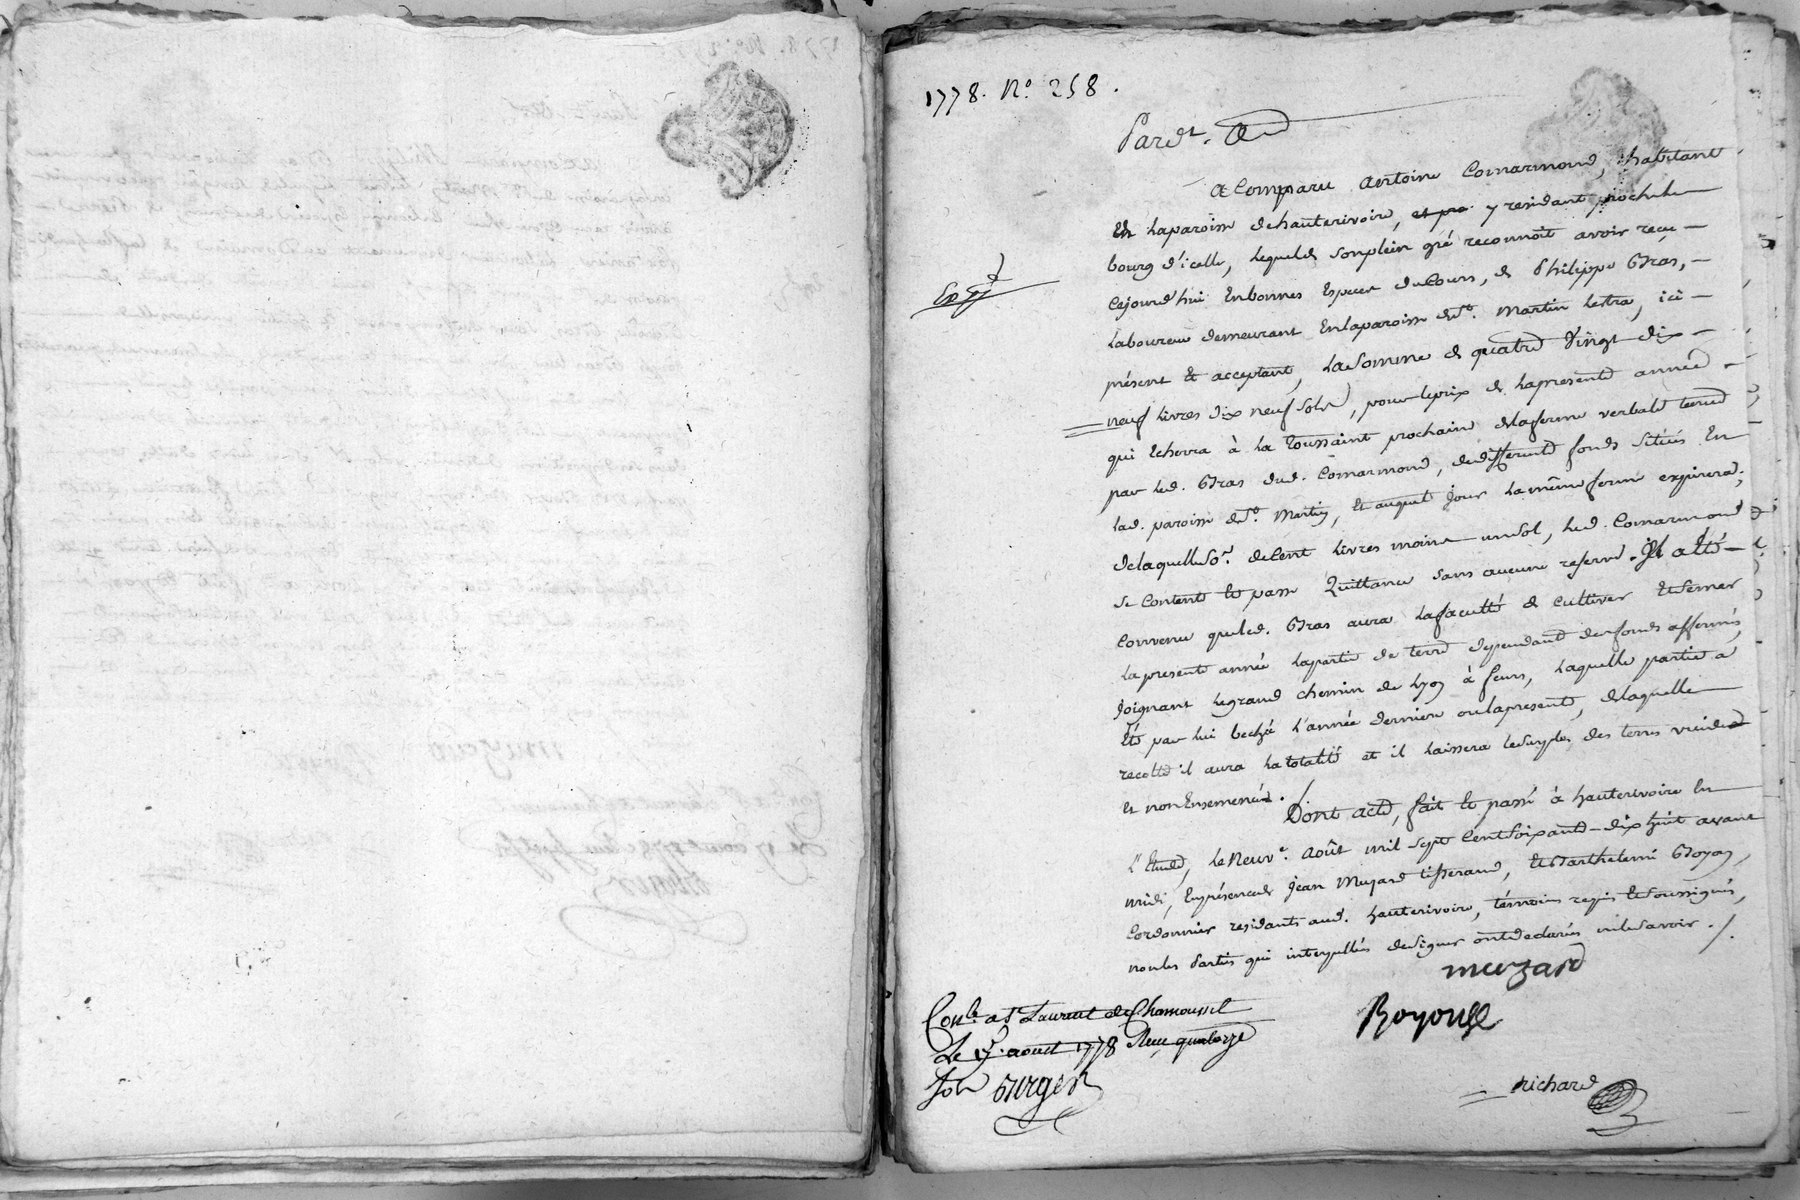 1778. N.º 258.
Pard.t
a Comparu antoine Comarmond, habitant
En Laparoisse dehauterivoire, et pro y residant proche le
bourg d'icelle, Lequel de Sonplein gré reconnoît avoir reçu
Cejourd'hui Enbonnes Especes du Cours, de Philippe Gras,
Laboureur demeurant Enlaparoisse de St. Martin Lestra, ici
présent Et acceptant, La Somme de quatre Vingt dix
neuf Livres dix neuf Sols, pour leprix de Lapresente année
qui Echerra à La Toussaint prochaine delaferme verbale tenue
par Led. Gras dud. Comarmond, de different fonds Situés En
Lad. paroisse de St. Martin, Et auquel jour La même ferme expirera;
delaquelle So.e deCent Livres moins un Sol, Led. Comarmond
Se Contente Et passe Quittance Sans aucune reserve. Il a Eté
Convenu queLed. Gras aura Lafaculté de Cultiver Et Semer
La presente année Lapartie de terre dependante des fonds affermés,
Joignant Legrand chemin de Lyon à feurs, Laquelle partie a
Eté par lui bechée L'année derniere ou Lapresente, de laquelle
recolte il aura La totalité et il Laissera Le Surplus des terres vuides
Et non Ensemencées.
Dont acte, fait Et passé à hauterivoire En
L'Etude, Le Neuv.e Août mil Sept Cent Soixante-dix huit avant
midi, Enprésence de Jean Muzard tisserand, Et Barthelemi Boyon,
Cordonnier residants aud. hauterivoire, témoins requis Et Soussignés,
non Les Parties qui interpellées designer ont declarés nele Savoir. /.
muzard
Boyon
richard
Con.lé a St Laurent de Chamousset
Le 17. aoust 1778 Reçu quatorze
Sols